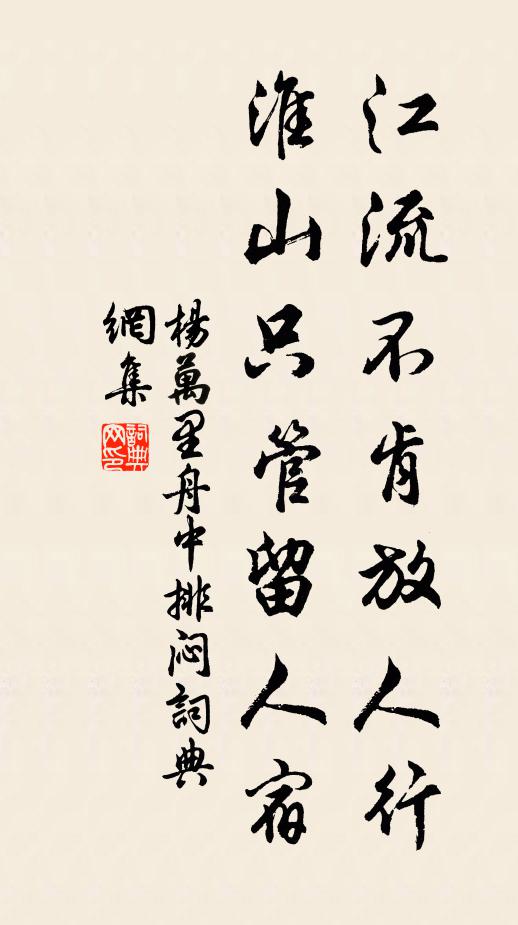 江流不肯放人行
淮山只管留人宿
楊萬里舟中排闷詞典
網集
詞典
网印